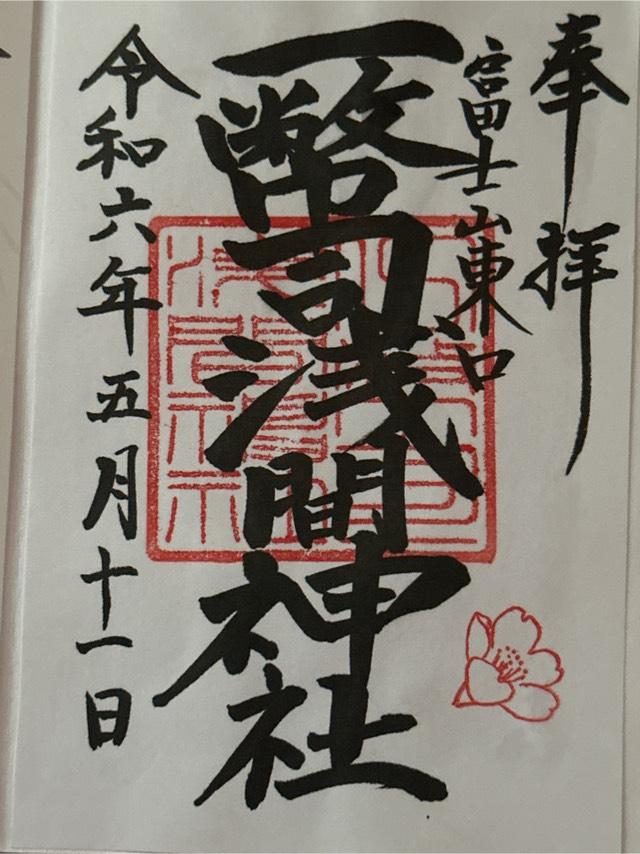 奉拝
富士山東口
一幣司浅間神社
令和六年五月十一日